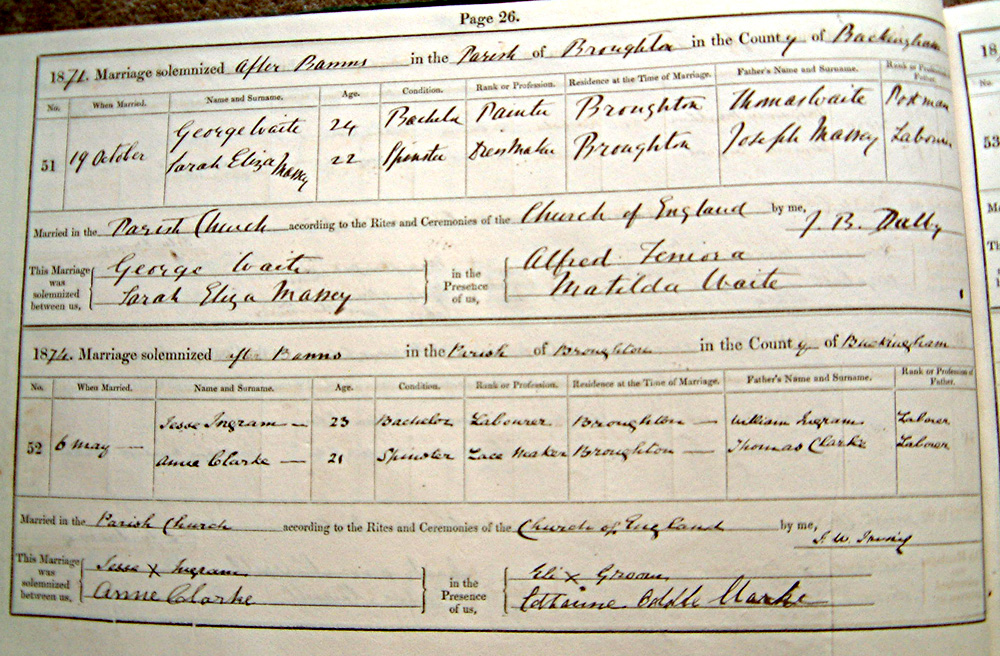 Page 26.
1871. Marriage solemnized After Banns in the Parish of Broughton in the County of Buckingham
No. When Married. Name and Surname. Age. Condition. Rank or Profession. Residence at the Time of Marriage. Father's Name and Surname. Rank or Profession of Father.
George Waite 24 Bachelor Painter Broughton Thomas Waite Postman
51 19 October Sarah Eliza Massey 22 Spinster Dress Maker Broughton Joseph Massey Labourer
Married in the Parish Church according to the Rites and Ceremonies of the Church of England by me, J. B. Dalby
This Marriage was solemnized between us, George Waite in the Presence of us, Alfred
Sarah Eliza Massey Matilda Waite
1874. Marriage solemnized after Banns in the Parish of Broughton in the County of Buckingham
No. When Married. Name and Surname. Age. Condition. Rank or Profession. Residence at the Time of Marriage. Father's Name and Surname. Rank or Profession of Father.
Jesse Ingram 23 Bachelor Labourer Broughton William Ingram Labourer
52 6 May Anne Clarke 21 Spinster Lace Maker Broughton Thomas Clarke Labourer
Married in the Parish Church according to the Rites and Ceremonies of the Church of England by me, J. W. Irving
This Marriage was solemnized between us, Jesse X Ingram in the Presence of us, Eli X Groom
Anne Clarke Clarke
18
No.
53